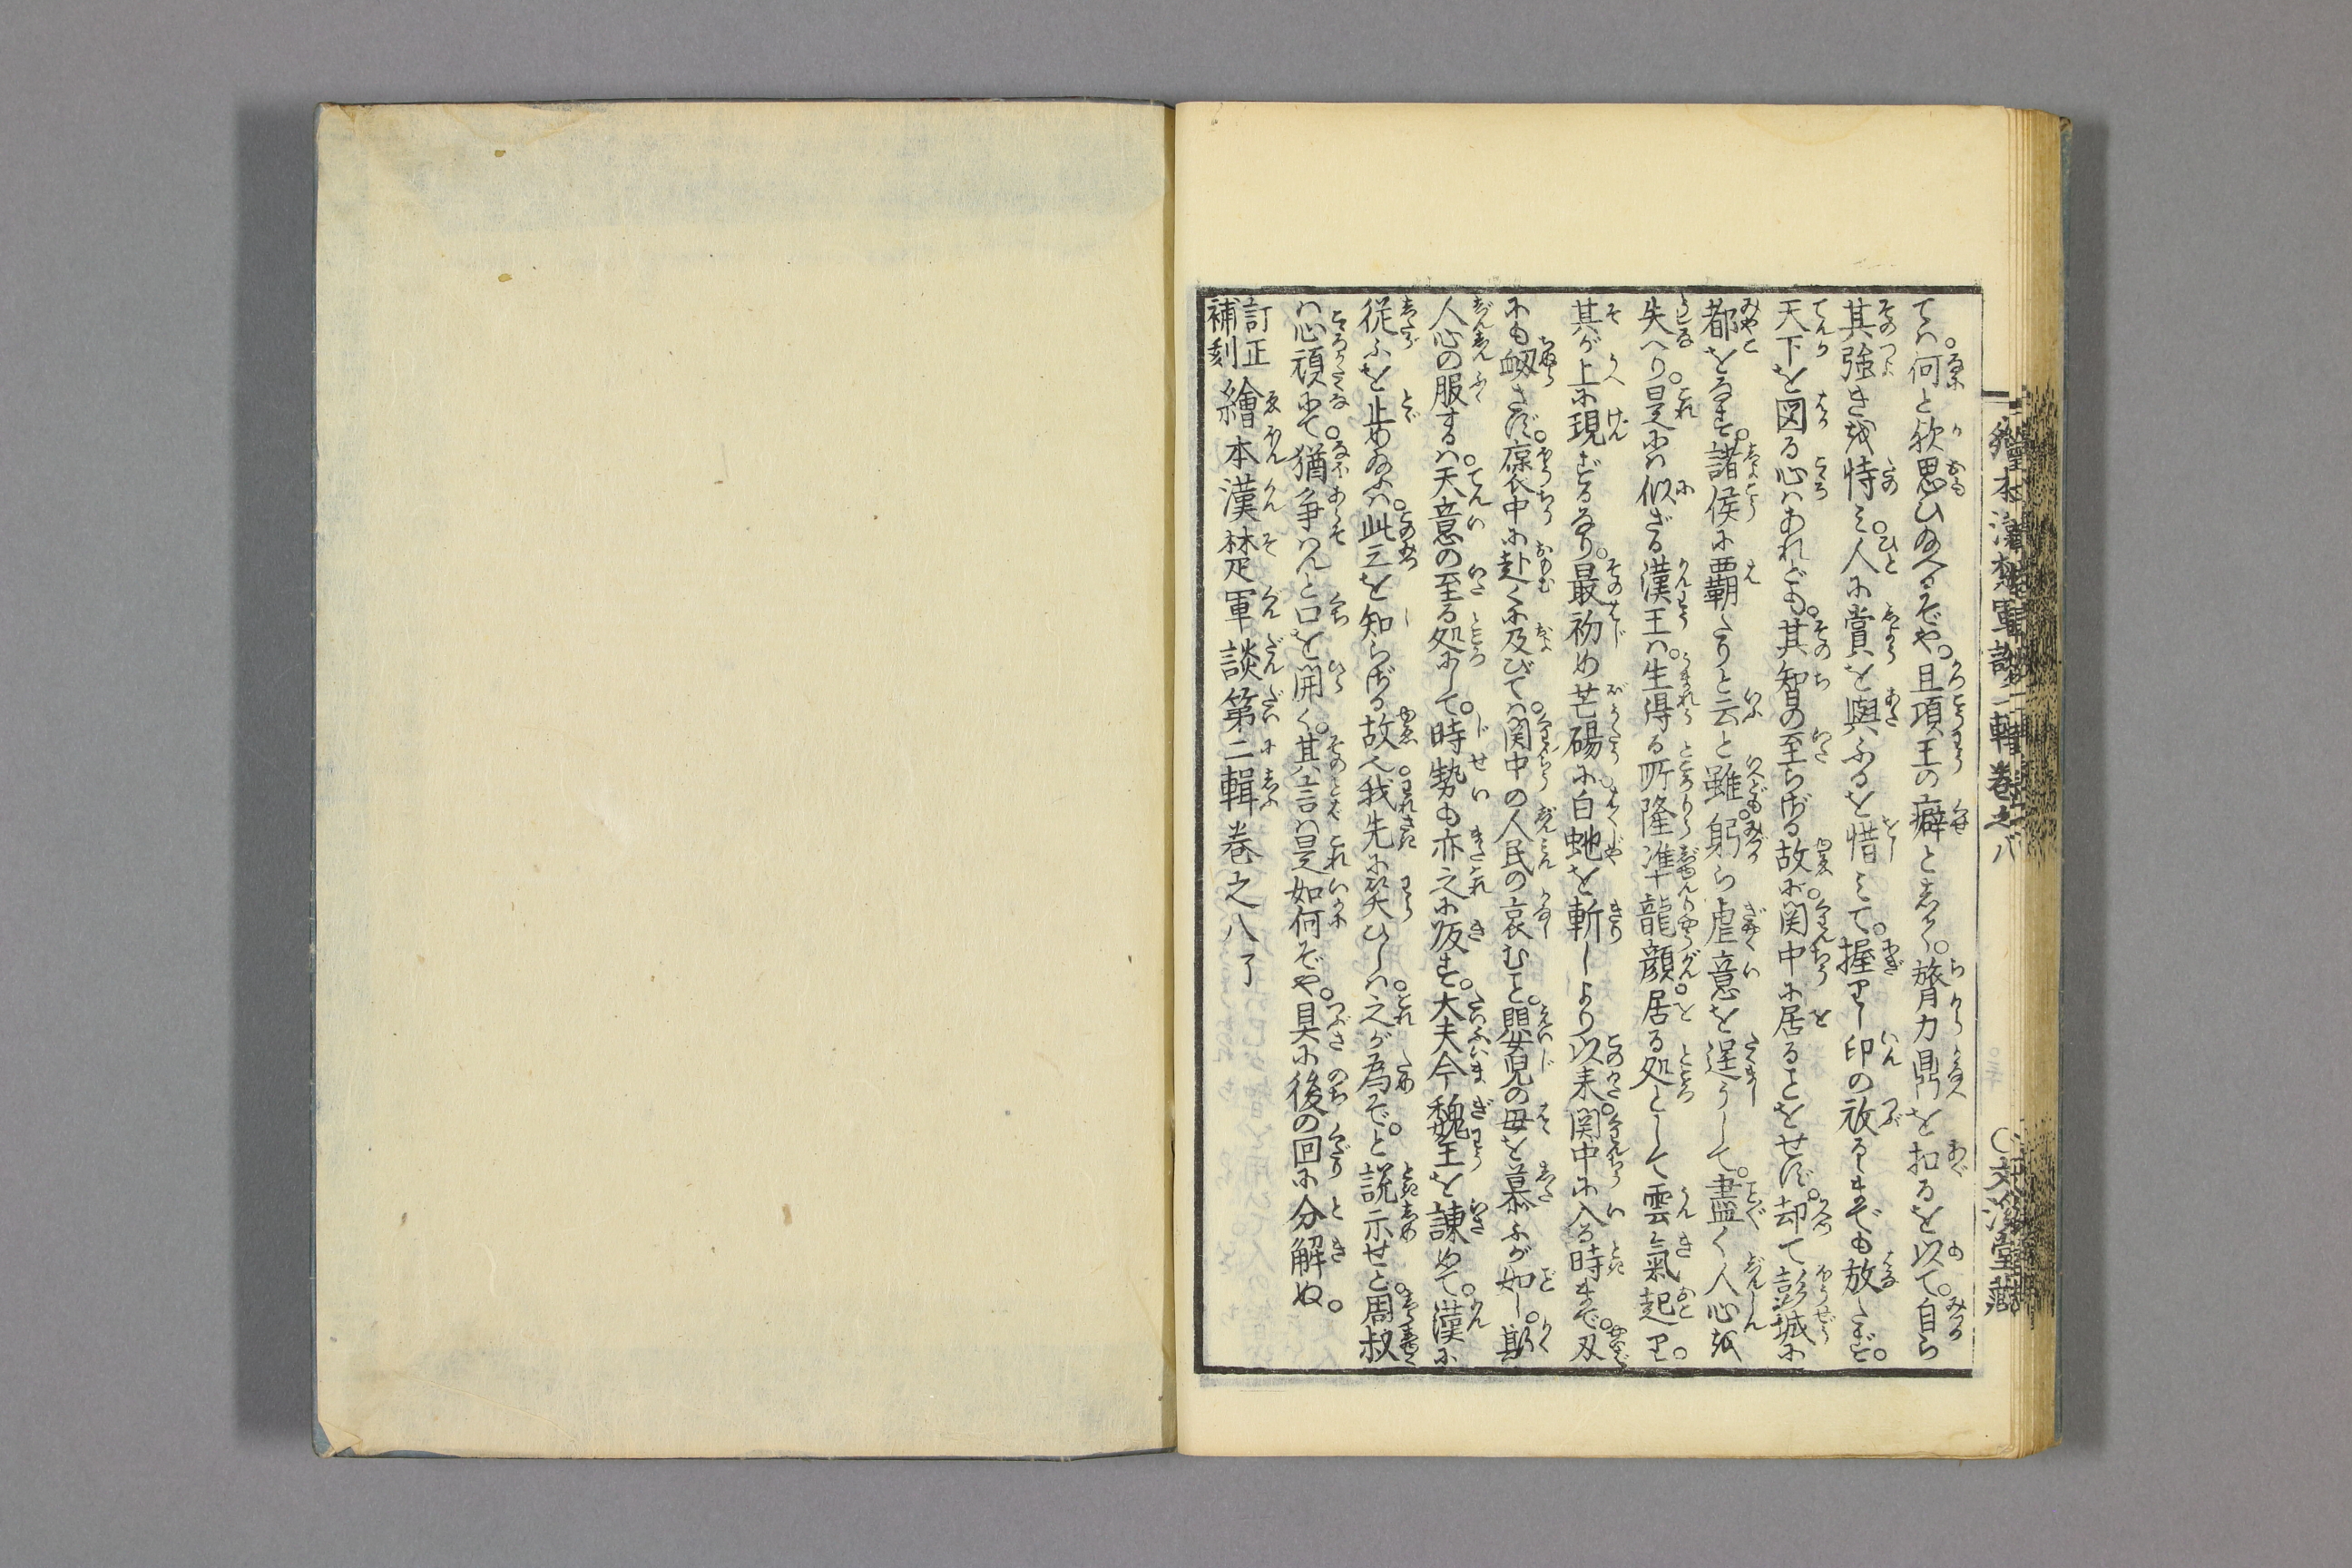 ては。何と欤思ひ給へるぞや。且項王の癖として。膂力鼎を扛るを以て。自ら
其強きを恃み。人に賞を與ふるを惜みて。握りし印の刓るゝまでも放たず。
天下を図る心はあれども。其智の至らざる故に。関中に居ることをせず。却て彭城に
都をなす。諸侯に覇たりと云と雖。躬ら虐意を逞うして。盡く人心を
失へり。是には似ざる漢王は。生得る所隆準龍顔。居る処として雲氣起り。
其が上に現ずるなり。最初め芒碭に。白蛇を斬しより以来。関中に入る時まで。刄
にも衂さず。褒中に赴くに及びては。関中の人民の哀むこと。嬰児の母を慕ふが如し。斯
人心の服するは。天意の至る処にして。時勢も亦之に阪す。大夫今魏王を諌めて。漢に
従ふを止め給ふは。此三を知らざる故へ。我先に笑ひしは。之が為ぞ。と説示せど。周叔
は心頑にて。猶争はんと口を開く。其言は是如何ぞや。具に後の回に分解ぬ。
訂正補刻 繪本漢楚軍談第二輯巻之八了
繪本漢楚軍談二輯巻之八 〇文溪堂藏